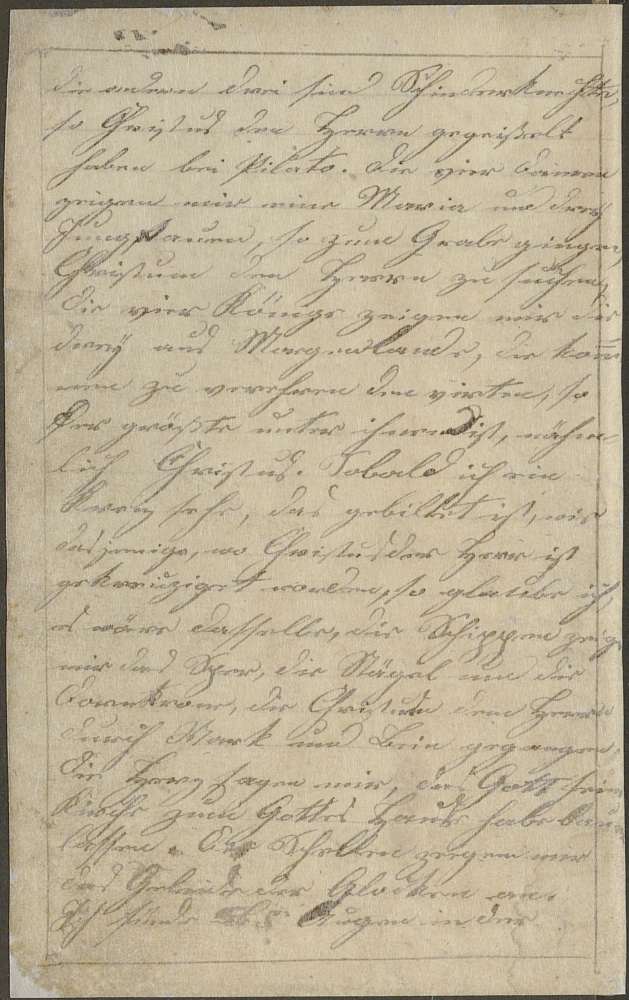 die andern drei sind Schinderknechte,
so Christus den Herrn gegeißelt
haben bei Pilato. Die vier Damen
zeigen mir eine Maria und drey
Jungfrauen, so zum Grabe gingen,
Christum den Herrn zu suchen,
die vier Könige zeigen mir die
drey aus Morgenlande, die kom̅
men zu verehren den virten, so
der größte unter ihnen ist, nähm-
lich Christus. Sobald ich ein
Kreuz sehe, das gebildet ist, wie
dasjenige, wo Christus der Herr ist
gekreuziget worden, so glaube ich,
es wäre dasselbe, die Schippen zeig
mir das Sper, die Nägel und die
Dornkrone, die Christum dem Herrn
durch Mark und Bein gegangen,
die Herz sagen mir, das Gott sein
Kirche zum Gottes Hause habe bau
lassen. Die Schellen zeigen mir
das Geleide der Glocken an.
Ich finde Augen in der